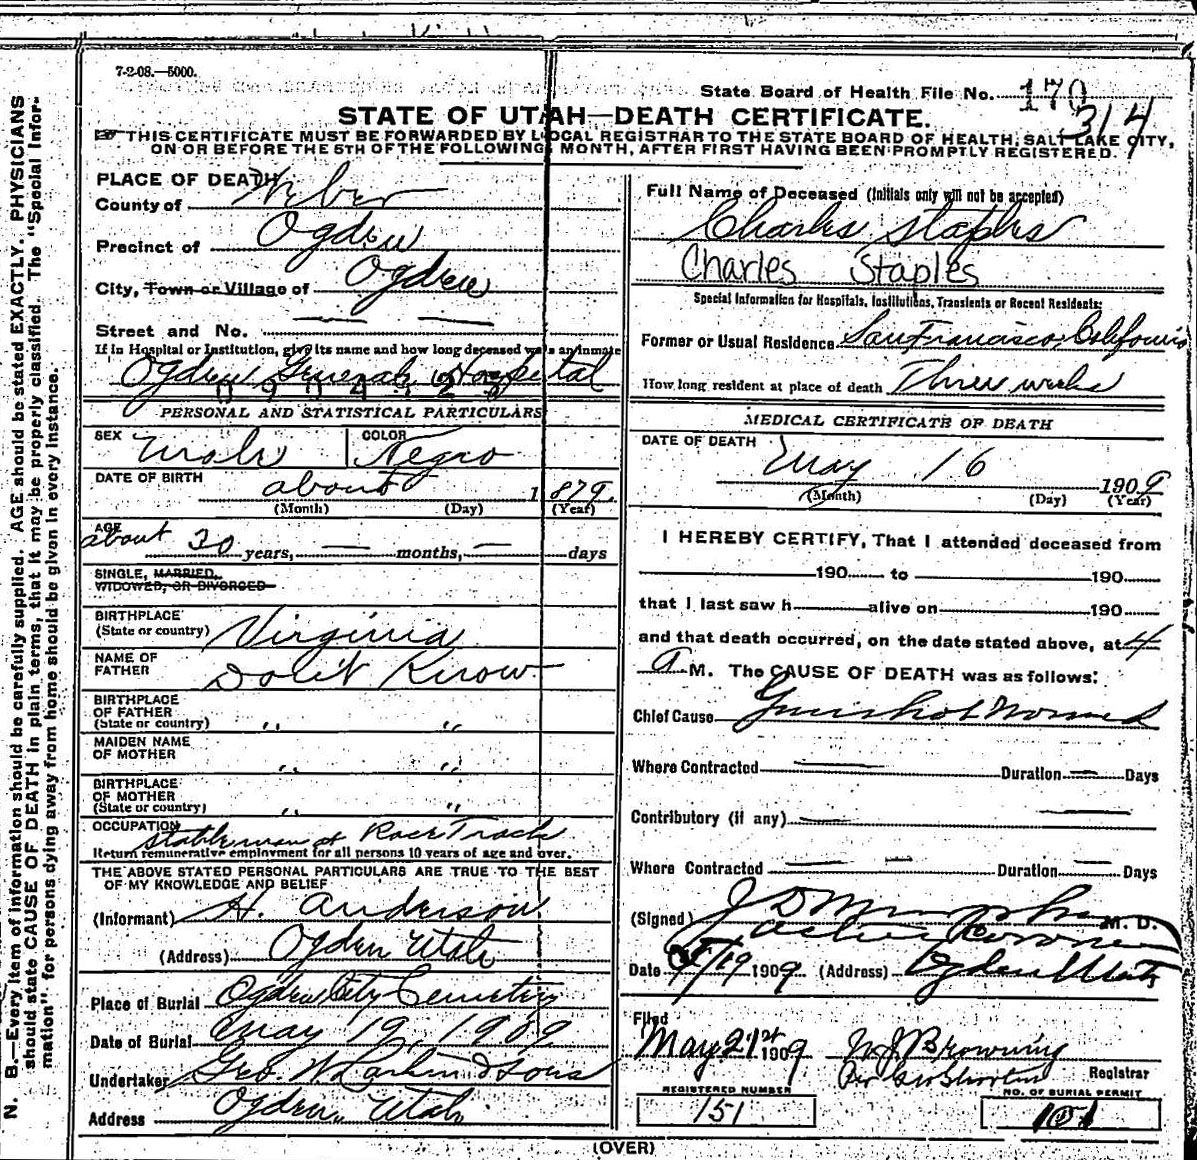 7-2-08.—5000.
State Board of Health File No. 170
314
STATE OF UTAH—DEATH CERTIFICATE.
☞ THIS CERTIFICATE MUST BE FORWARDED BY LOCAL REGISTRAR TO THE STATE BOARD OF HEALTH, SALT LAKE CITY,
ON OR BEFORE THE 5TH OF THE FOLLOWING MONTH, AFTER FIRST HAVING BEEN PROMPTLY REGISTERED.
N. B.—Every item of information should be carefully supplied. AGE should be stated EXACTLY. PHYSICIANS
should state CAUSE OF DEATH in plain terms, that it may be properly classified. The "Special Infor-
mation" for persons dying away from home should be given in every instance.
PLACE OF DEATH
County of Weber
Precinct of Ogden
City, Town or Village of Ogden
Street and No. — —
If in Hospital or Institution, give its name and how long deceased was an inmate
Ogden General Hospital
PERSONAL AND STATISTICAL PARTICULARS
SEX Male COLOR Negro
DATE OF BIRTH about 1879.
(Month) (Day) (Year)
AGE about 30 years, — months, — days
SINGLE, MARRIED,
WIDOWED, OR DIVORCED
BIRTHPLACE
(State or country) Virginia
NAME OF
FATHER Dont Know
BIRTHPLACE
OF FATHER
(State or country) " "
MAIDEN NAME
OF MOTHER " "
BIRTHPLACE
OF MOTHER
(State or country) " "
OCCUPATION Stableman at Race Track
Return remunerative employment for all persons 10 years of age and over.
THE ABOVE STATED PERSONAL PARTICULARS ARE TRUE TO THE BEST
OF MY KNOWLEDGE AND BELIEF
(Informant) H. Anderson
(Address) Ogden Utah
Place of Burial Ogden City Cemetery
Date of Burial May 19, 1909
Undertaker Geo. W. Larkin & Sons
Address Ogden, Utah
Full Name of Deceased (Initials only will not be accepted)
Charles Staples
Charles Staples
Special Information for Hospitals, Institutions, Transients or Recent Residents:
Former or Usual Residence San Francisco, California
How long resident at place of death Three weeks
MEDICAL CERTIFICATE OF DEATH
DATE OF DEATH
May 16 1909
(Month) (Day) (Year)
I HEREBY CERTIFY, That I attended deceased from
190 to 190
that I last saw h alive on 190
and that death occurred, on the date stated above, at 4
a M. The CAUSE OF DEATH was as follows:
Chief Cause Gunshot Wound
Where Contracted — Duration — Days
Contributory (if any) —
Where Contracted — — Duration — Days
(Signed) J D Murphy M. D.
Acting Coroner
Date 5/19 1909 (Address) Ogden Utah
Filed
May 21st 1909 W J Browning
Per Registrar
REGISTERED NUMBER
151
NO. OF BURIAL PERMIT
151
(OVER)